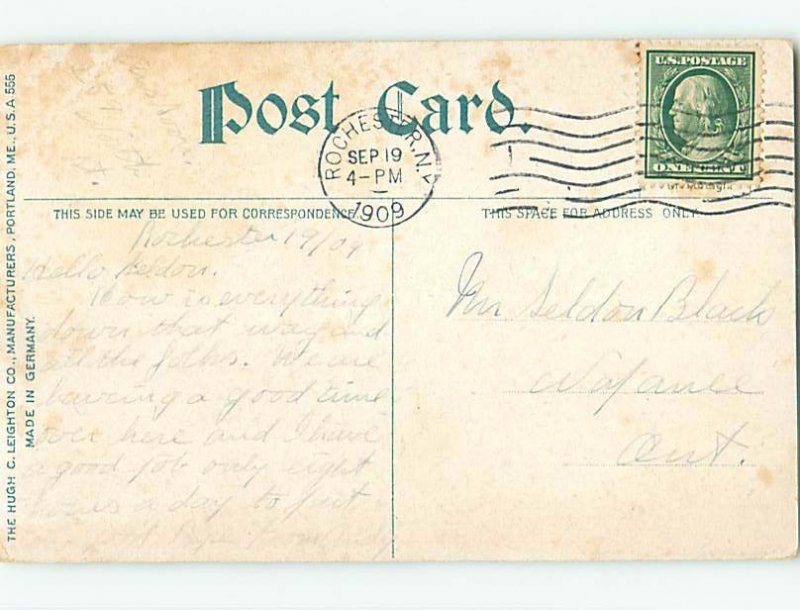 Post Card.
U.S. POSTAGE
ONE CENT
ROCHESTER, N.Y.
SEP 19
4-PM
1909
THIS SIDE MAY BE USED FOR CORRESPONDENCE
THIS SPACE FOR ADDRESS ONLY
THE HUGH C. LEIGHTON CO., MANUFACTURERS, PORTLAND, ME., U.S.A 555
MADE IN GERMANY.
Rochester 19/09
Hello Seldon.
How is everything
down that way and
all the folks. We are
having a good time
over here and I have
a good job only eight
hours a day to put
Mr Seldon Black
Ont.